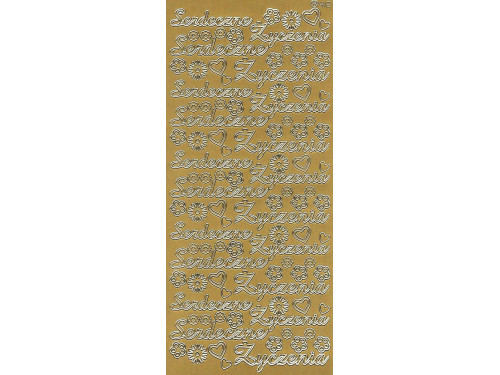 Serdeczne
Życzenia
Serdeczne
Życzenia
Serdeczne
Życzenia
Serdeczne
Życzenia
Serdeczne
Życzenia
Serdeczne
Życzenia
Serdeczne
Życzenia
Serdeczne
Życzenia
Serdeczne
Życzenia
Serdeczne
Życzenia